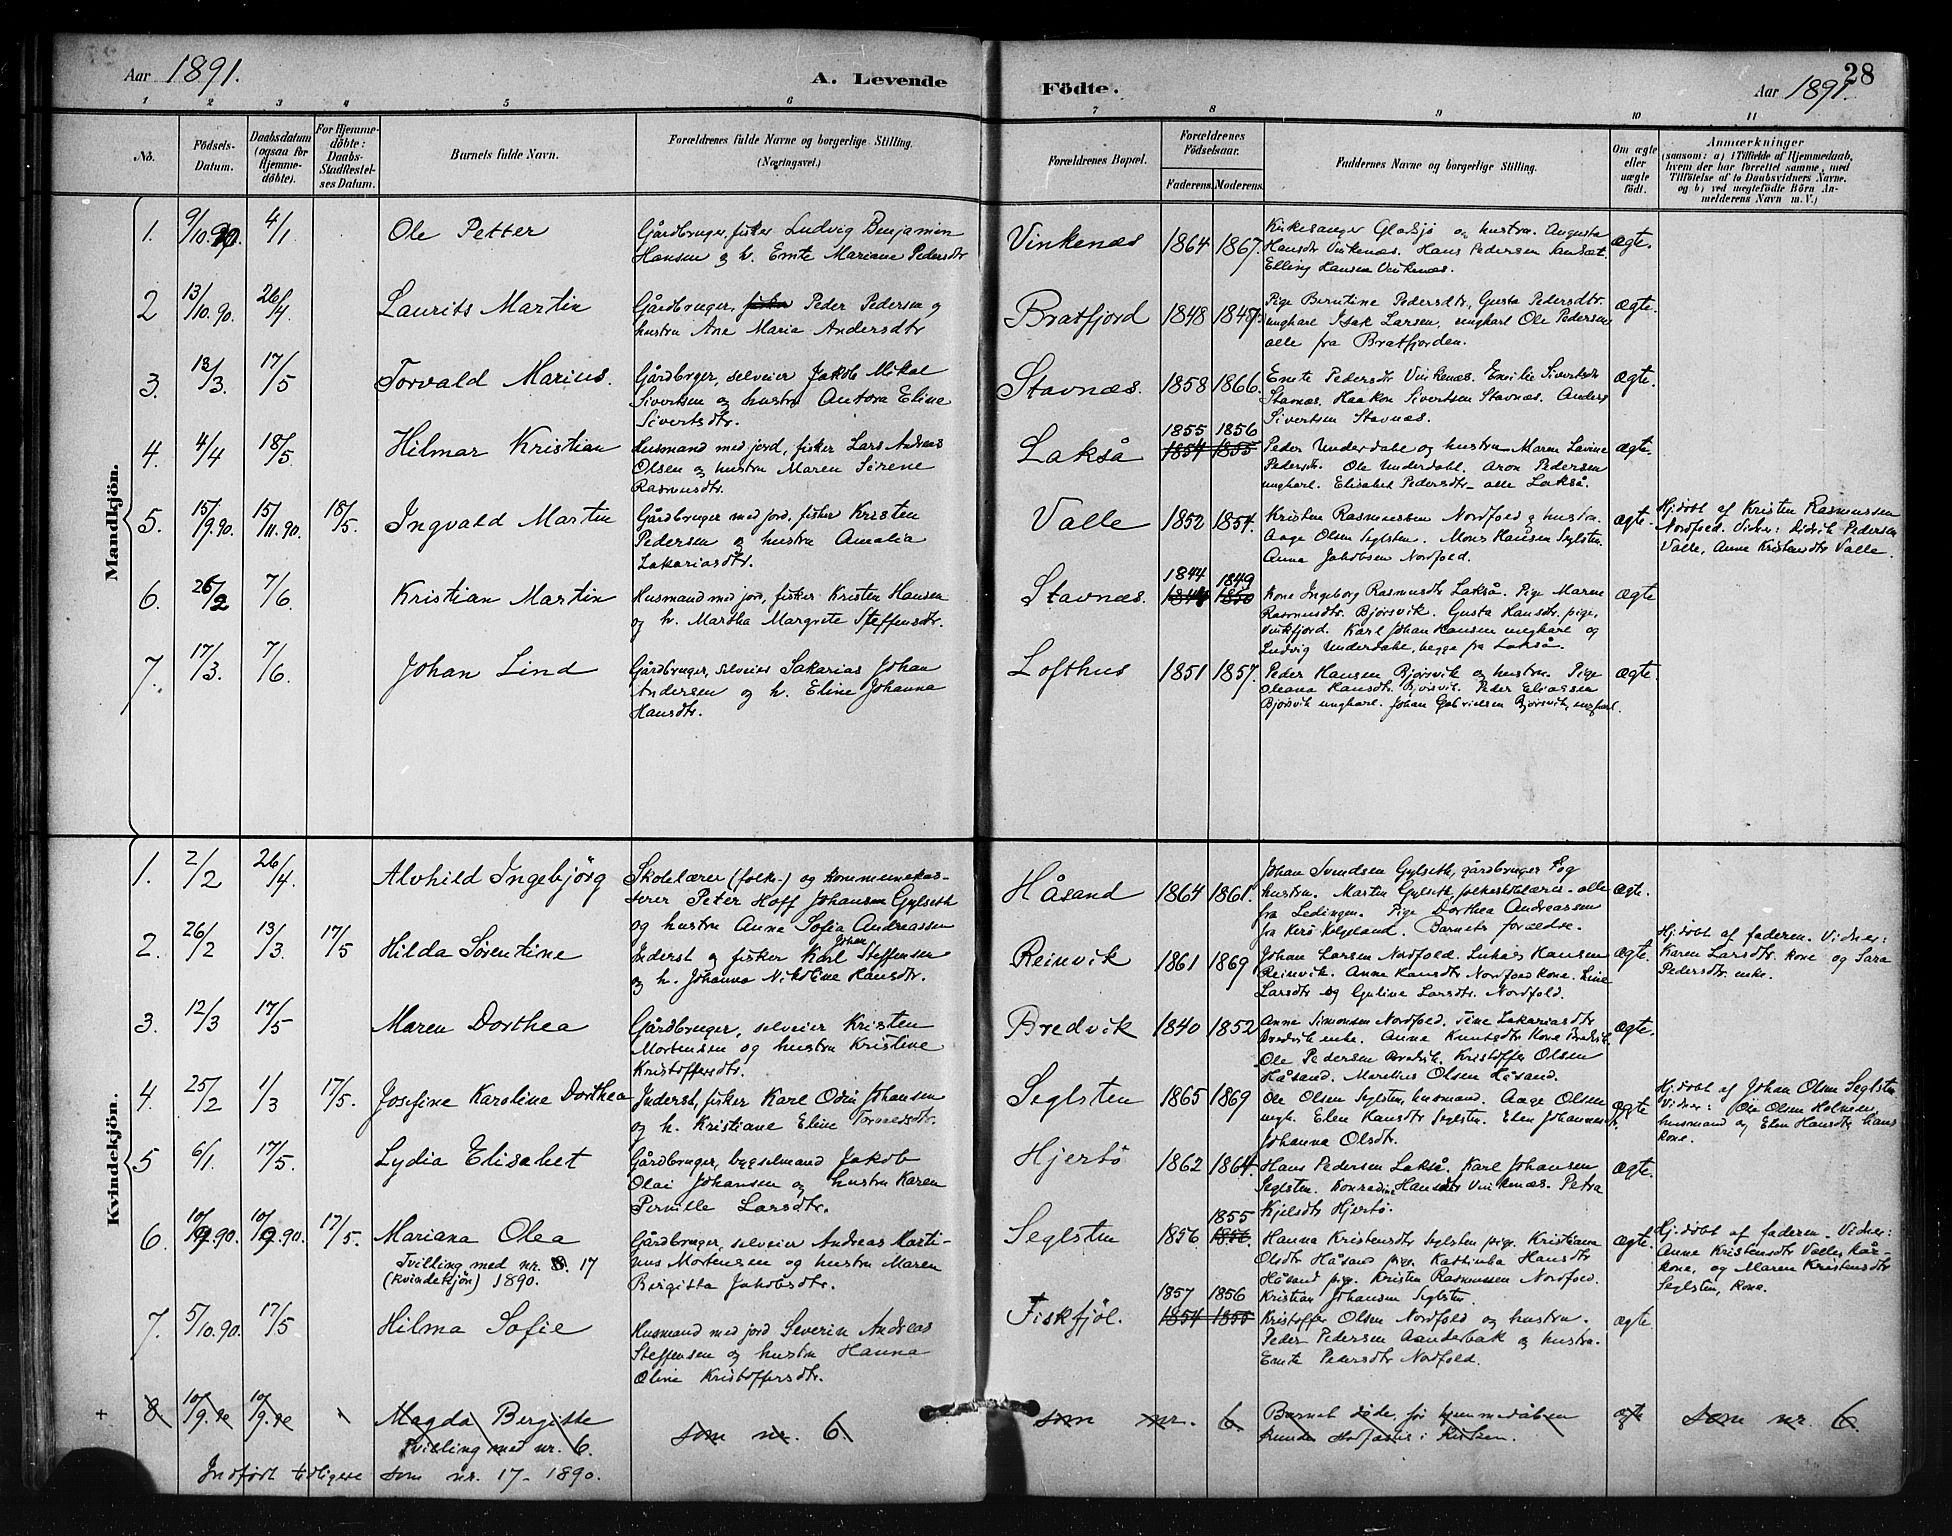 Aar 1891. A. Levende Födte. Aar 1891. 28
1 2 3 4 5 6 7 8 9 10 11
No. Födsels-Datum. Daabsdatum (ogsaa for Hjemme-döbte). For Hjemme-döbte: Daabs-Stadfæstelses Datum. Barnets fulde Navn. Forældrenes fulde Navne og borgerlige Stilling. (Næringsvei.) Forældrenes Bopæl. Forældrenes Födselsaar. Faderens. Moderens. Faddernes Navne og borgerlige Stilling. Om ægte eller uægte födt. Anmærkninger (saasom: a) i Tilfælde af Hjemmedaab, hvem der har forrettet samme, med Tilföielse af to Daabsvidners Navne, og b) ved uægtefödte Börn Anmelderens Navn m. V.)
Mandkjön.
1. 9/10.90. 4/1 Ole Petter Gårdbruger, fisker Ludvig Benjamin Vinkenæs 1864 1867. Kirkesanger Gladsjö og hustru. Augusta ægte.
Hansen og h. Emte Mariane Pedersdtr Hansdtr Vinkenæs. Hans Pedersen
Elling Hansen Vinkenæs.
2 13/10.90. 26/4. Laurits Martin Gårdbruger, fisker Peder Pedersen og Bratfjord 1848 1847. Pige Berntine Pedersdtr, Gusta Pedersdtr. ægte.
hustru Ane Maria Andersdtr ungkarl Isak Larsen, ungkarl Ole Pedersen
alle fra Bratfjorden.
3. 13/3. 17/5 Torvald Marius. Gårdbrger, selveier Jakob Mikal Stavnæs. 1858 1866. Emte Pedersdtr Vinkenæs. Emilie Sivertsdtr ægte.
Sivertsen og hustru Antora Eline Stavnæs. Haakon Sivertsen Stavnæs. Anders
Sivertsdtr. Sivertsen Stavnæs.
1855 1856
4. 4/4 18/5. Hilmar Kristian Husmand med jord, fisker Lars Andreas Lakså 1854 1855 Peder Underdahl og hustru Maren Lavine ægte.
Olsen og hustru Maren Sirene Pedersdtr. Ole Underdahl. Aron Pedersen
Rasmusdtr. ungkarl. Elisabet Pedersdtr - alle Lakså.
5. 15/9.90. 15/11.90. 18/5. Ingvald Martin Gårdbruger med jord, fisker Kristen Valle 1850 1854. Kristen Rasmussen Nordfold og hustru. ægte. Hj.döbt af Kristen Rasmussen
Pedersen og hustru Amalia Aage Olsen Seglsten. Mons Hansen Seglsten. Nordfold. Vidner: Didrik Pedersen
Zakariasdtr. Anna Jakobsen Nordfold. Valle, Anne Kristensdtr Valle.
1844 1849
6. 26/2 7/6. Kristian Martin Husmand med jord, fisker Kristen Hansen Stavnæs. 1850 Kone Ingeborg Rasmusdtr Lakså. Pige Maren ægte
og h. Martha Margrete Steffensdtr. Rasmusdtr. Bjørsvik. Gusta Hansdtr. pige,
Vinkfjord. Karl Johan Hansen ungkarl og
Ludvig Underdahl, begge fra Lakså.
7. 17/3. 7/6. Johan Lind Gårdbruger, selveier Sakarias Johan Lofthus 1851 1857. Peder Hansen Bjørsvik og hustru. Pige ægte.
Andersen og h. Eline Johanna Oleana Hansdtr. Bjørsvik. Peder Eliassen
Hansdtr. Bjørsvik ungkarl. Johan Gabrielsen Bjørsvik, ungkarl.
Kvindekjön.
1. 2/2 26/4. Alvhild Ingebjörg Skolelærer (folke-) og kommunekas- Håsand 1864 1861. Johan Svendsen Gylseth, gårdbruger og ægte.
serer Peter Hoff Johansen Gylseth hustru. Martin Gylseth, folkeskolelærer - alle
og hustru Anne Sofia Andreassen fra Lødingen. Pige Dorthea Andreassen
fra Helgeland. Barnets forældre.
2. 26/2 13/3 17/5 Hilda Sørentine Inderst og fisker Karl Johan Steffensen Reinvik 1861 1869 Johan Larsen Nordfold. Lukas Hansen ægte. Hj.døbt af faderen. Vidner:
og h. Johanna Nikoline Hansdtr. Reinvik. Anne Hansdtr Nordfold kone. Line Karen Larsdtr. kone og Sara
Larsdtr og Guline Larsdtr. Nordfold. Pedersdtr. enke.
3. 12/3 17/5 Maren Dorthea Gårdbruger, selveier Kristen Bredvik 1840 1852 Anne Simonsen Nordfold. Tine Zakariasdtr ægte.
Mortensen og hustru Kristine Bredvik enke. Anne Knutsdtr Kone Bredvik
Kristoffersdtr. Ole Pedersen Bredvik. Kristoffer Olsen
Håsand. Marelius Olsen Håsand.
4. 25/2 1/3 17/5. Josefine Karoline Dorthea Inderst, fisker Karl Odin Johansen Seglsten 1865 1869 Ole Olsen Seglsten, husmand. Aage Olsen ægte Hj.døbt af Johan Olsen Seglsten
og h. Kristiane Eline Tomasdtr. ungk. Elen Hansdtr Seglsten. Elen Johannesdtr. Vidner: Ole Olsen Holmen,
Johanna Olsdtr. husmand og Elen Hansdtr, hans
kone.
5 6/1. 17/5. Lydia Elisabet Gårdbruger, bygselmand Jakob Hjertö 1862 1864. Hans Pedersen Lakså. Karl Johansen ægte.
Olai Johansen og hustru Karen Seglsten. Konradine Hansdtr Vinkenæs. Petra
Pernille Larsdtr. Kjelsdtr Hjertö.
1855
6. 10/9.90. 10/9.90. 17/5. Mariana Olea Gårdbruger, selveier Andreas Marti- Seglsten 1856. 1856. Hanna Kristensdtr Seglsten pige. Kristiana ægte. Hj.døbt af faderen. Vidner:
Tvilling med nr. 8. 17 nus Mortensen og hustru Maren Olsdtr Håsand pige. Kathinka Hansdtr Anne Kristensdtr Valle, kår-
(kvindekjön) 1890. Birgitta Jakobsdtr. Håsand pige. Kristen Rasmussen Nordfold. kone, og Maren Kristensdtr
Kristian Johansen Seglsten. Seglsten, kone.
1857 1856
7. 5/10.90. 17/5 Hilma Sofie Husmand med jord Severin Andreas Fiskfjöl. 1854 1855 Kristoffer Olsen Nordfold og hustru. ægte.
Steffensen og hustru Hanna Peder Pedersen Aanderbak og hustru.
Oline Kristoffersdtr. Emte Pedersdtr Nordfold.
+ 8 10/9.90 10/9.90 Magda Bergitte som nr. 6. som nr. 6. Barnet døde, før hjemmedåben ægte som nr. 6.
Tvilling med nr. 6. kunde stadfæstes i kirken.
Indført tidligere som nr. 17 - 1890.